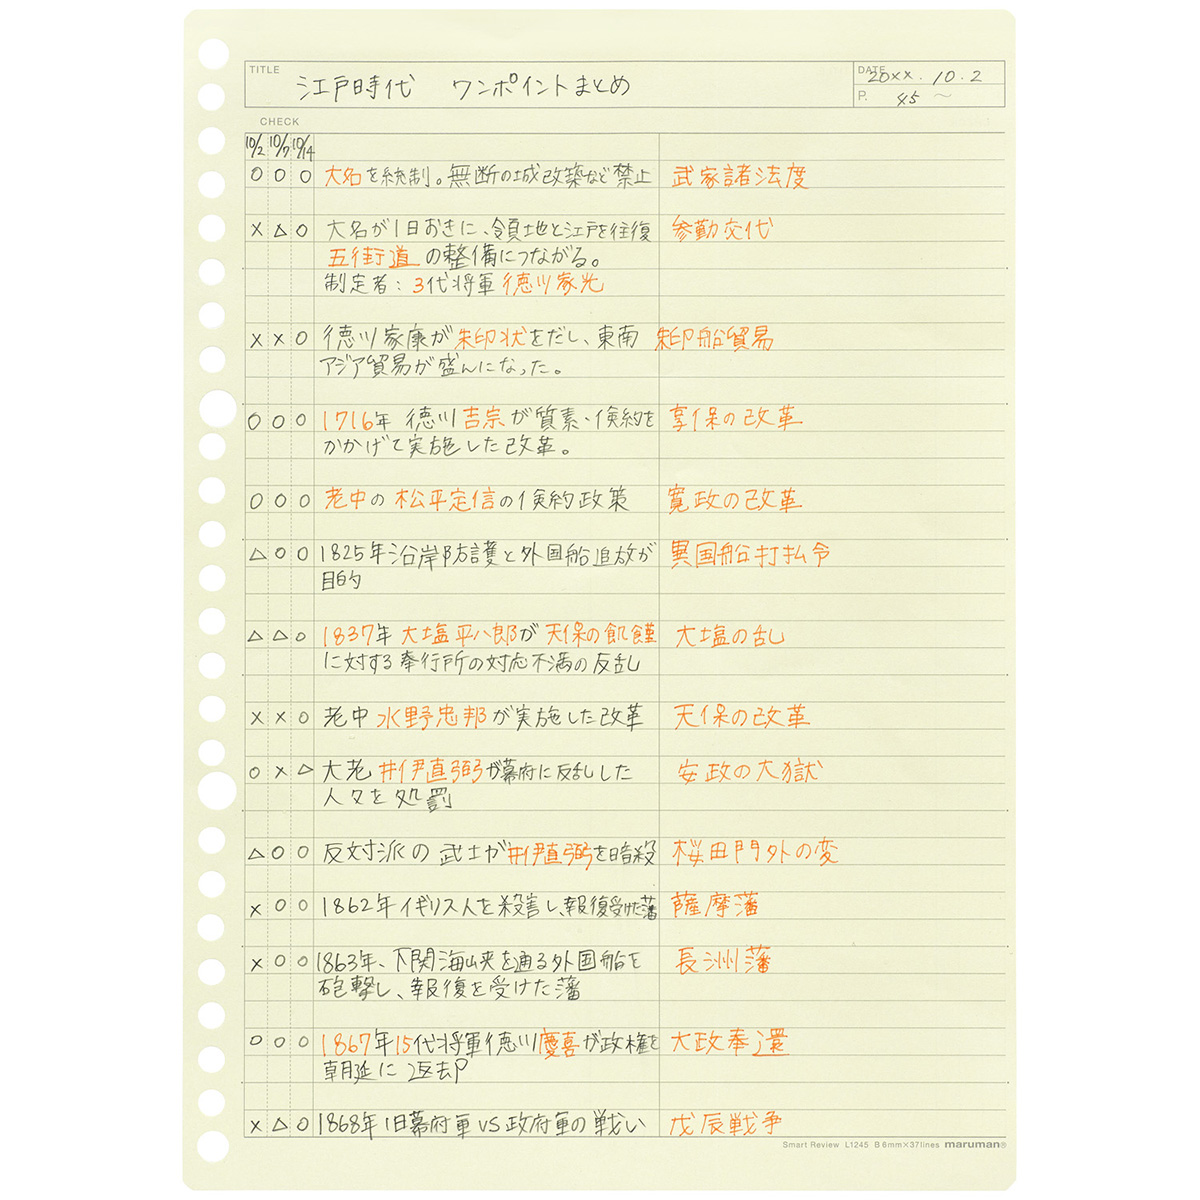 TITLE 江戸時代 ワンポイントまとめ DATE 20××.10.2
P. 45 〜
CHECK
10/2 10/7 10/14
○ ○ ○ 大名を統制。無断の城改築など禁止 武家諸法度
× △ ○ 大名が1日おきに、領地と江戸を往復 参勤交代
五街道の整備につながる。
制定者：3代将軍 徳川家光
× × ○ 徳川家康が朱印状をだし、東南 朱印船貿易
アジア貿易が盛んになった。
○ ○ ○ 1716年 徳川吉宗が質素・倹約を 享保の改革
かかげて実施した改革。
○ ○ ○ 老中の松平定信の倹約政策 寛政の改革
△ ○ ○ 1825年沿岸防護と外国船追放が 異国船打払令
目的
△ △ ○ 1837年 大塩平八郎が天保の飢饉 大塩の乱
に対する奉行所の対応不満の反乱
× × ○ 老中 水野忠邦が実施した改革 天保の改革
○ × △ 大老 井伊直弼が幕府に反乱した 安政の大獄
人々を処罰
△ ○ ○ 反対派の武士が井伊直弼を暗殺 桜田門外の変
× ○ ○ 1862年イギリス人を殺害し、報復受けた藩 薩摩藩
× ○ ○ 1863年、下関海峡を通る外国船を 長洲藩
砲撃し、報復を受けた藩
○ ○ ○ 1867年15代将軍徳川慶喜が政権を 大政奉還
朝廷に返却
× △ ○ 1868年旧幕府軍VS政府軍の戦い 戊辰戦争
Smart Review L1245 B 6mm×37lines maruman®